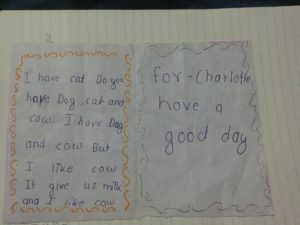 I have cat. Do you
have Dog, cat and
cow. I have Dog
and cow But
I like cow
It give us milk
and I like cow
for-Charlotte
have a
good day